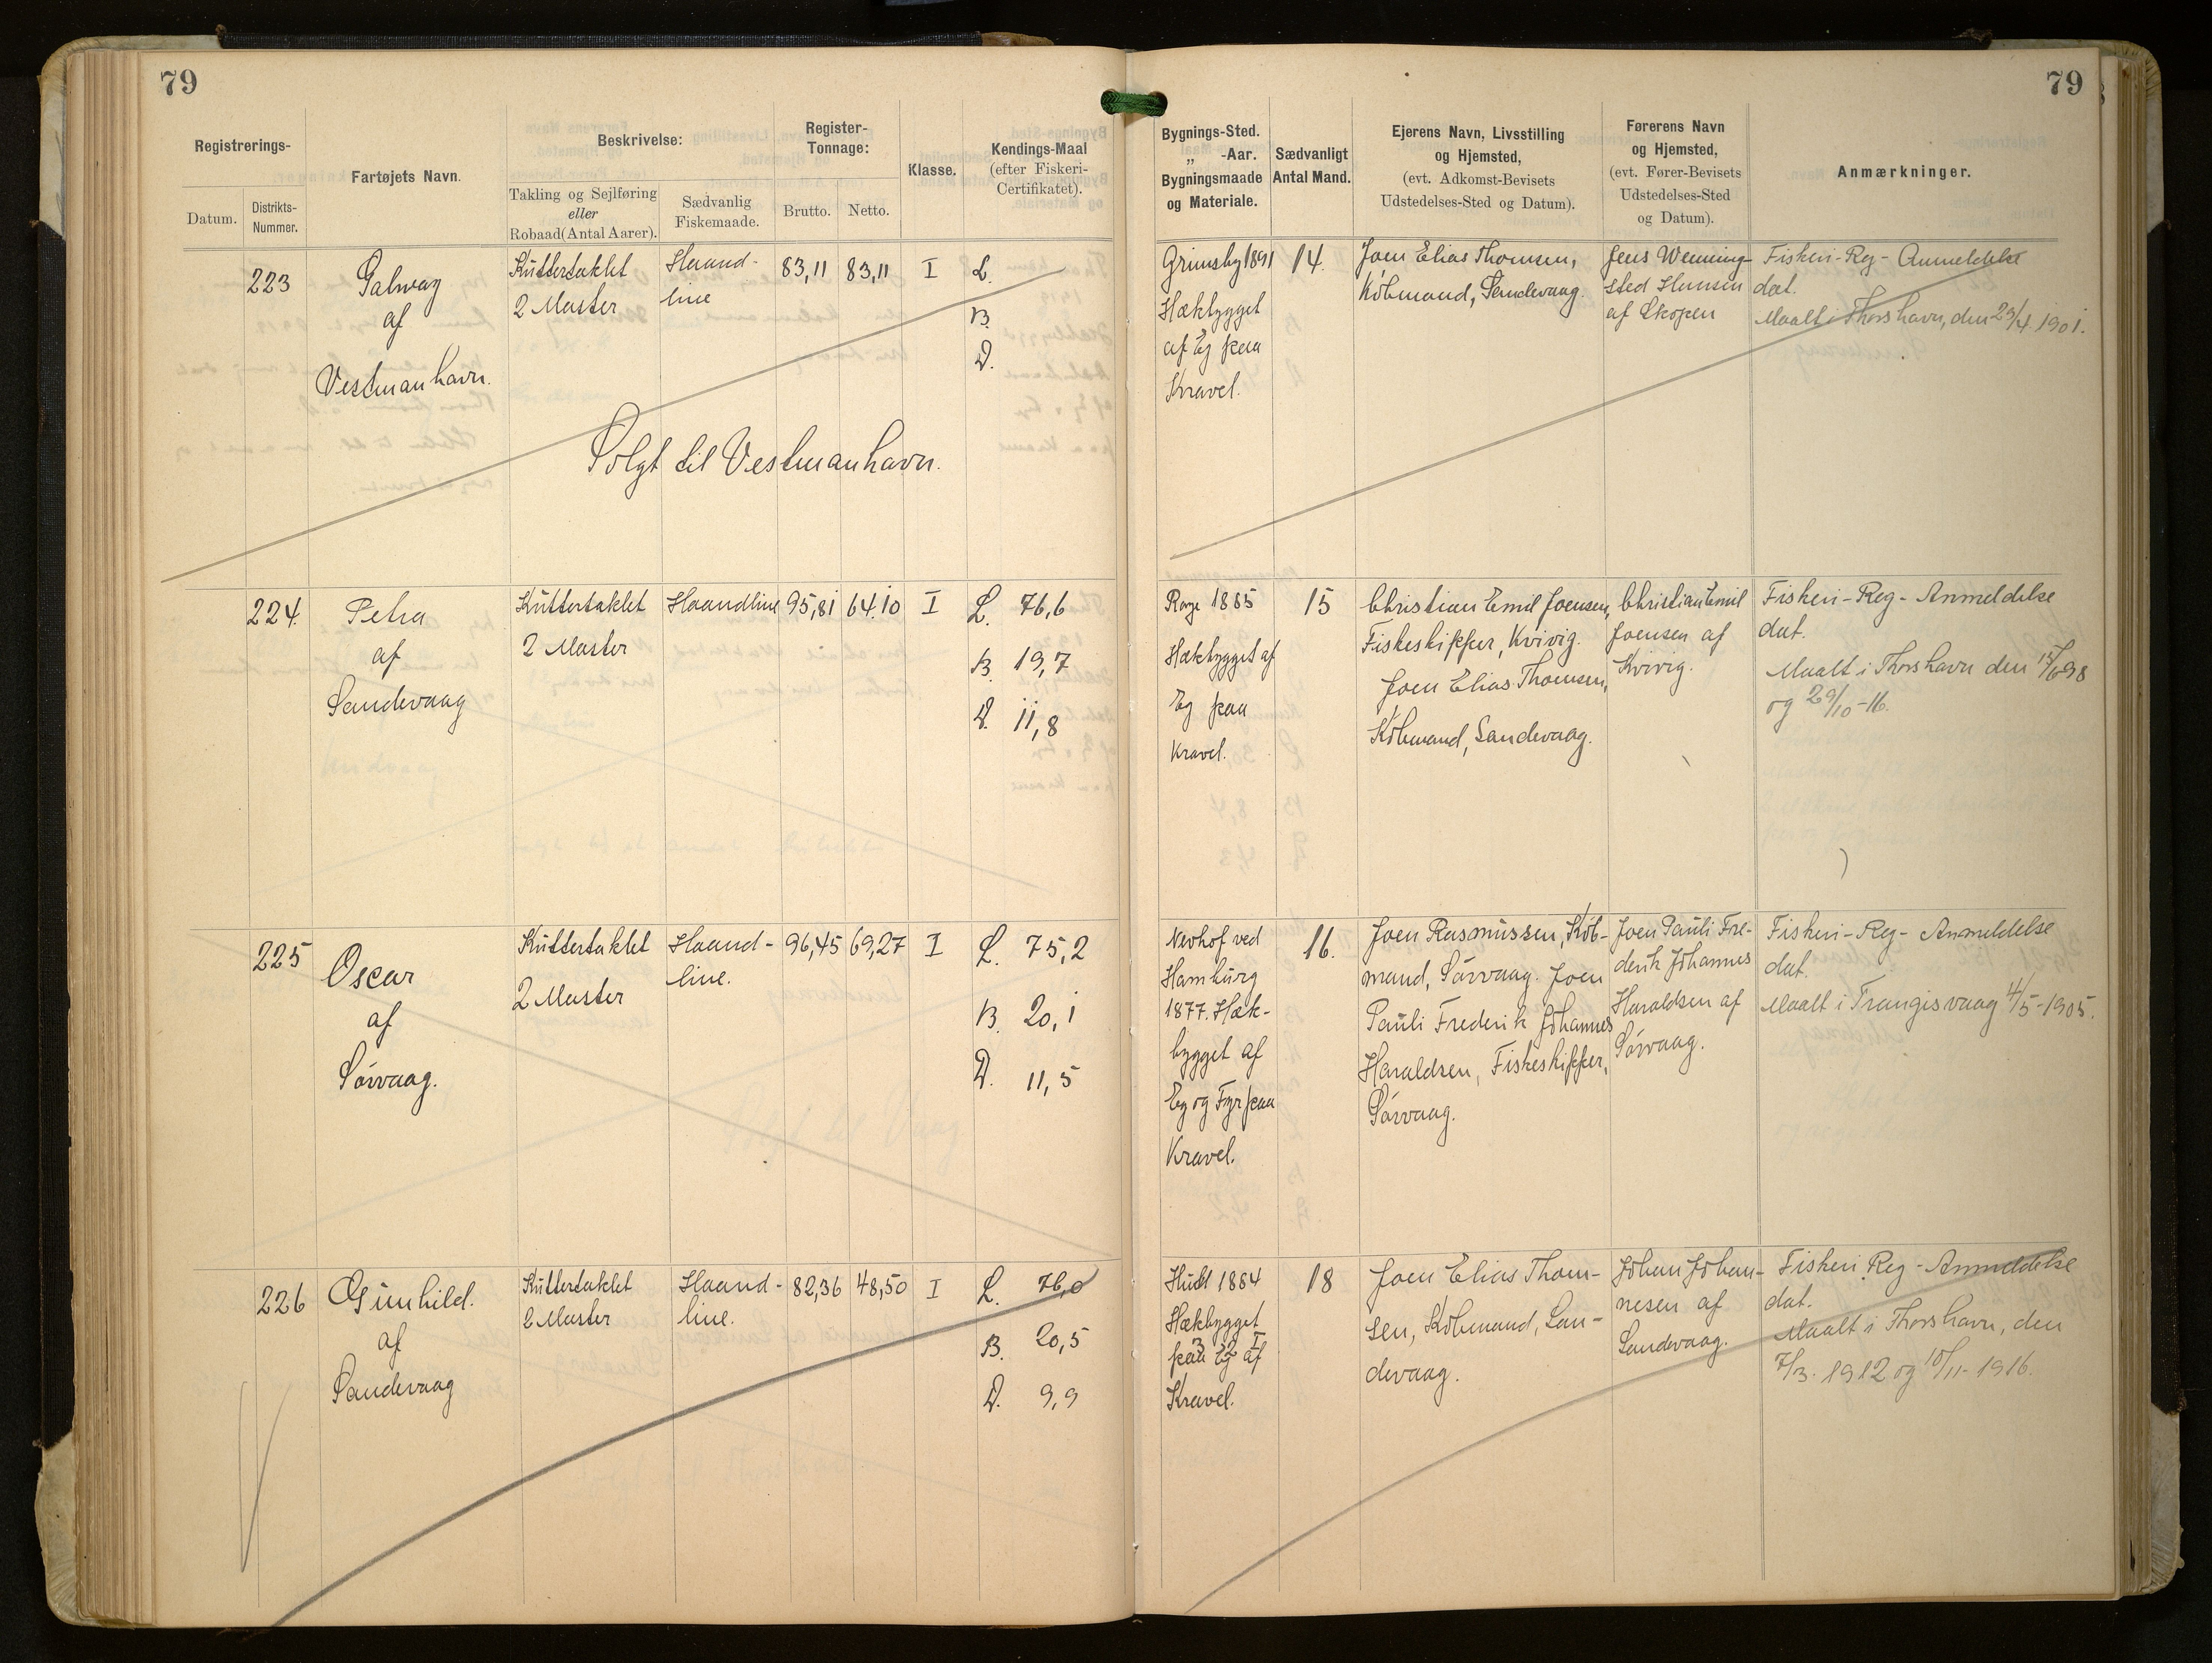 79
79
Registrerings-
Datum.
Distrikts-
Nummer.
Fartøjets Navn.
Beskrivelse:
Takling og Sejlføring
eller
Robaad(Antal Aarer).
Sædvanlig
Fiskemaade.
Register-
Tonnage:
Brutto.
Netto.
Klasse.
Kendings-Maal
(efter Fiskeri-
Certifikatet).
Bygnings-Sted.
„ -Aar.
Bygningsmaade
og Materiale.
Sædvanligt
Antal Mand.
Ejerens Navn, Livsstilling
og Hjemsted,
(evt. Adkomst-Bevisets
Udstedelses-Sted og Datum).
Førerens Navn
og Hjemsted,
(evt. Fører-Bevisets
Udstedelses-Sted
og Datum).
Anmærkninger.
223
Galway
af
Vestmanhavn.
Kuttertaklet
2 Master
Haand-
line
83,11
83,11
I
L.
B.
D.
Solgt til Vestmanhavn.
Grimsby 1891
Hækbygget
af Eg paa
Kravel.
14.
Joen Elias Thomsen,
Købmand, Sandevaag.
Jens Wenning-
sted Hansen
af Skopen
Fiskeri-Reg-Anmeldelse
dat.
Maalt i Thorshavn, den 29/4. 1901.
224.
Petra
af
Sandevaag
Kuttertaklet
2 Master
Haandline
95,81
64.10
I
L. 76,6
B. 19,7
D. 11,8
1885
Hækbygget af
Eg paa
Kravel.
15
Christian Emil Joensen,
Fiskeskipper, Kvivig.
Joen Elias Thomsen,
Købmand, Sandevaag.
Christian Emil
Joensen af
Kvivig.
Fiskeri-Reg-Anmeldelse
dat.
Maalt i Thorshavn den
og 29/10-16.
225
Oscar
af
Sórvaag.
Kuttertaklet
2 Master
Haand-
line.
96,45
69,27
I
L. 75,2
B. 20,1
D. 11,5
ved
Hamburg
1877. Hæk-
bygget af
Eg og Fyr paa
Kravel.
16.
Joen Rasmussen, Køb-
mand, Sórvaag. Joen
Pauli Frederik Johannes
Haraldsen, Fiskeskipper,
Sórvaag.
Joen Pauli Fre-
derik Johannes
Haraldsen af
Sórvaag.
Fiskeri-Reg-Anmeldelse
dat.
Maalt i Trangisvaag 4/5-1905.
226
Gunhild.
af
Sandevaag
Kuttertaklet
2 Master
Haand-
line.
82,36
48,50
I
L. 76,0
B. 20,5
D. 9,9
Hull 1884
Hækbygget
paa Eg af
Kravel.
18
Joen Elias Thom-
sen, Købmand, San-
devaag.
Johan Johan-
nesen af
Sandevaag.
Fiskeri Reg-Anmeldelse
dat.
Maalt i Thorshavn, den
7/3. 1912 og 10/11-1916.